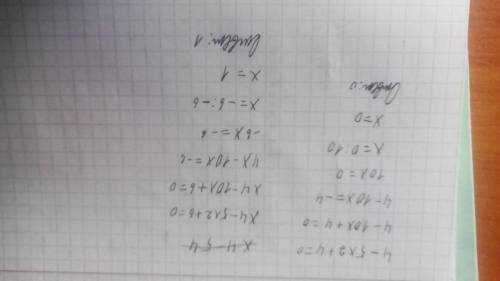 4-5x2+4=0
4-10x+4=0
4-10x=-4
10x=0
x=0:10
x=0
Ответ: 0
x4-54
x4-5x2+6=0
x4-10x+6=0
4x-10x=-6
-6x=-6
x=-6:-6
x=1
Ответ: 1